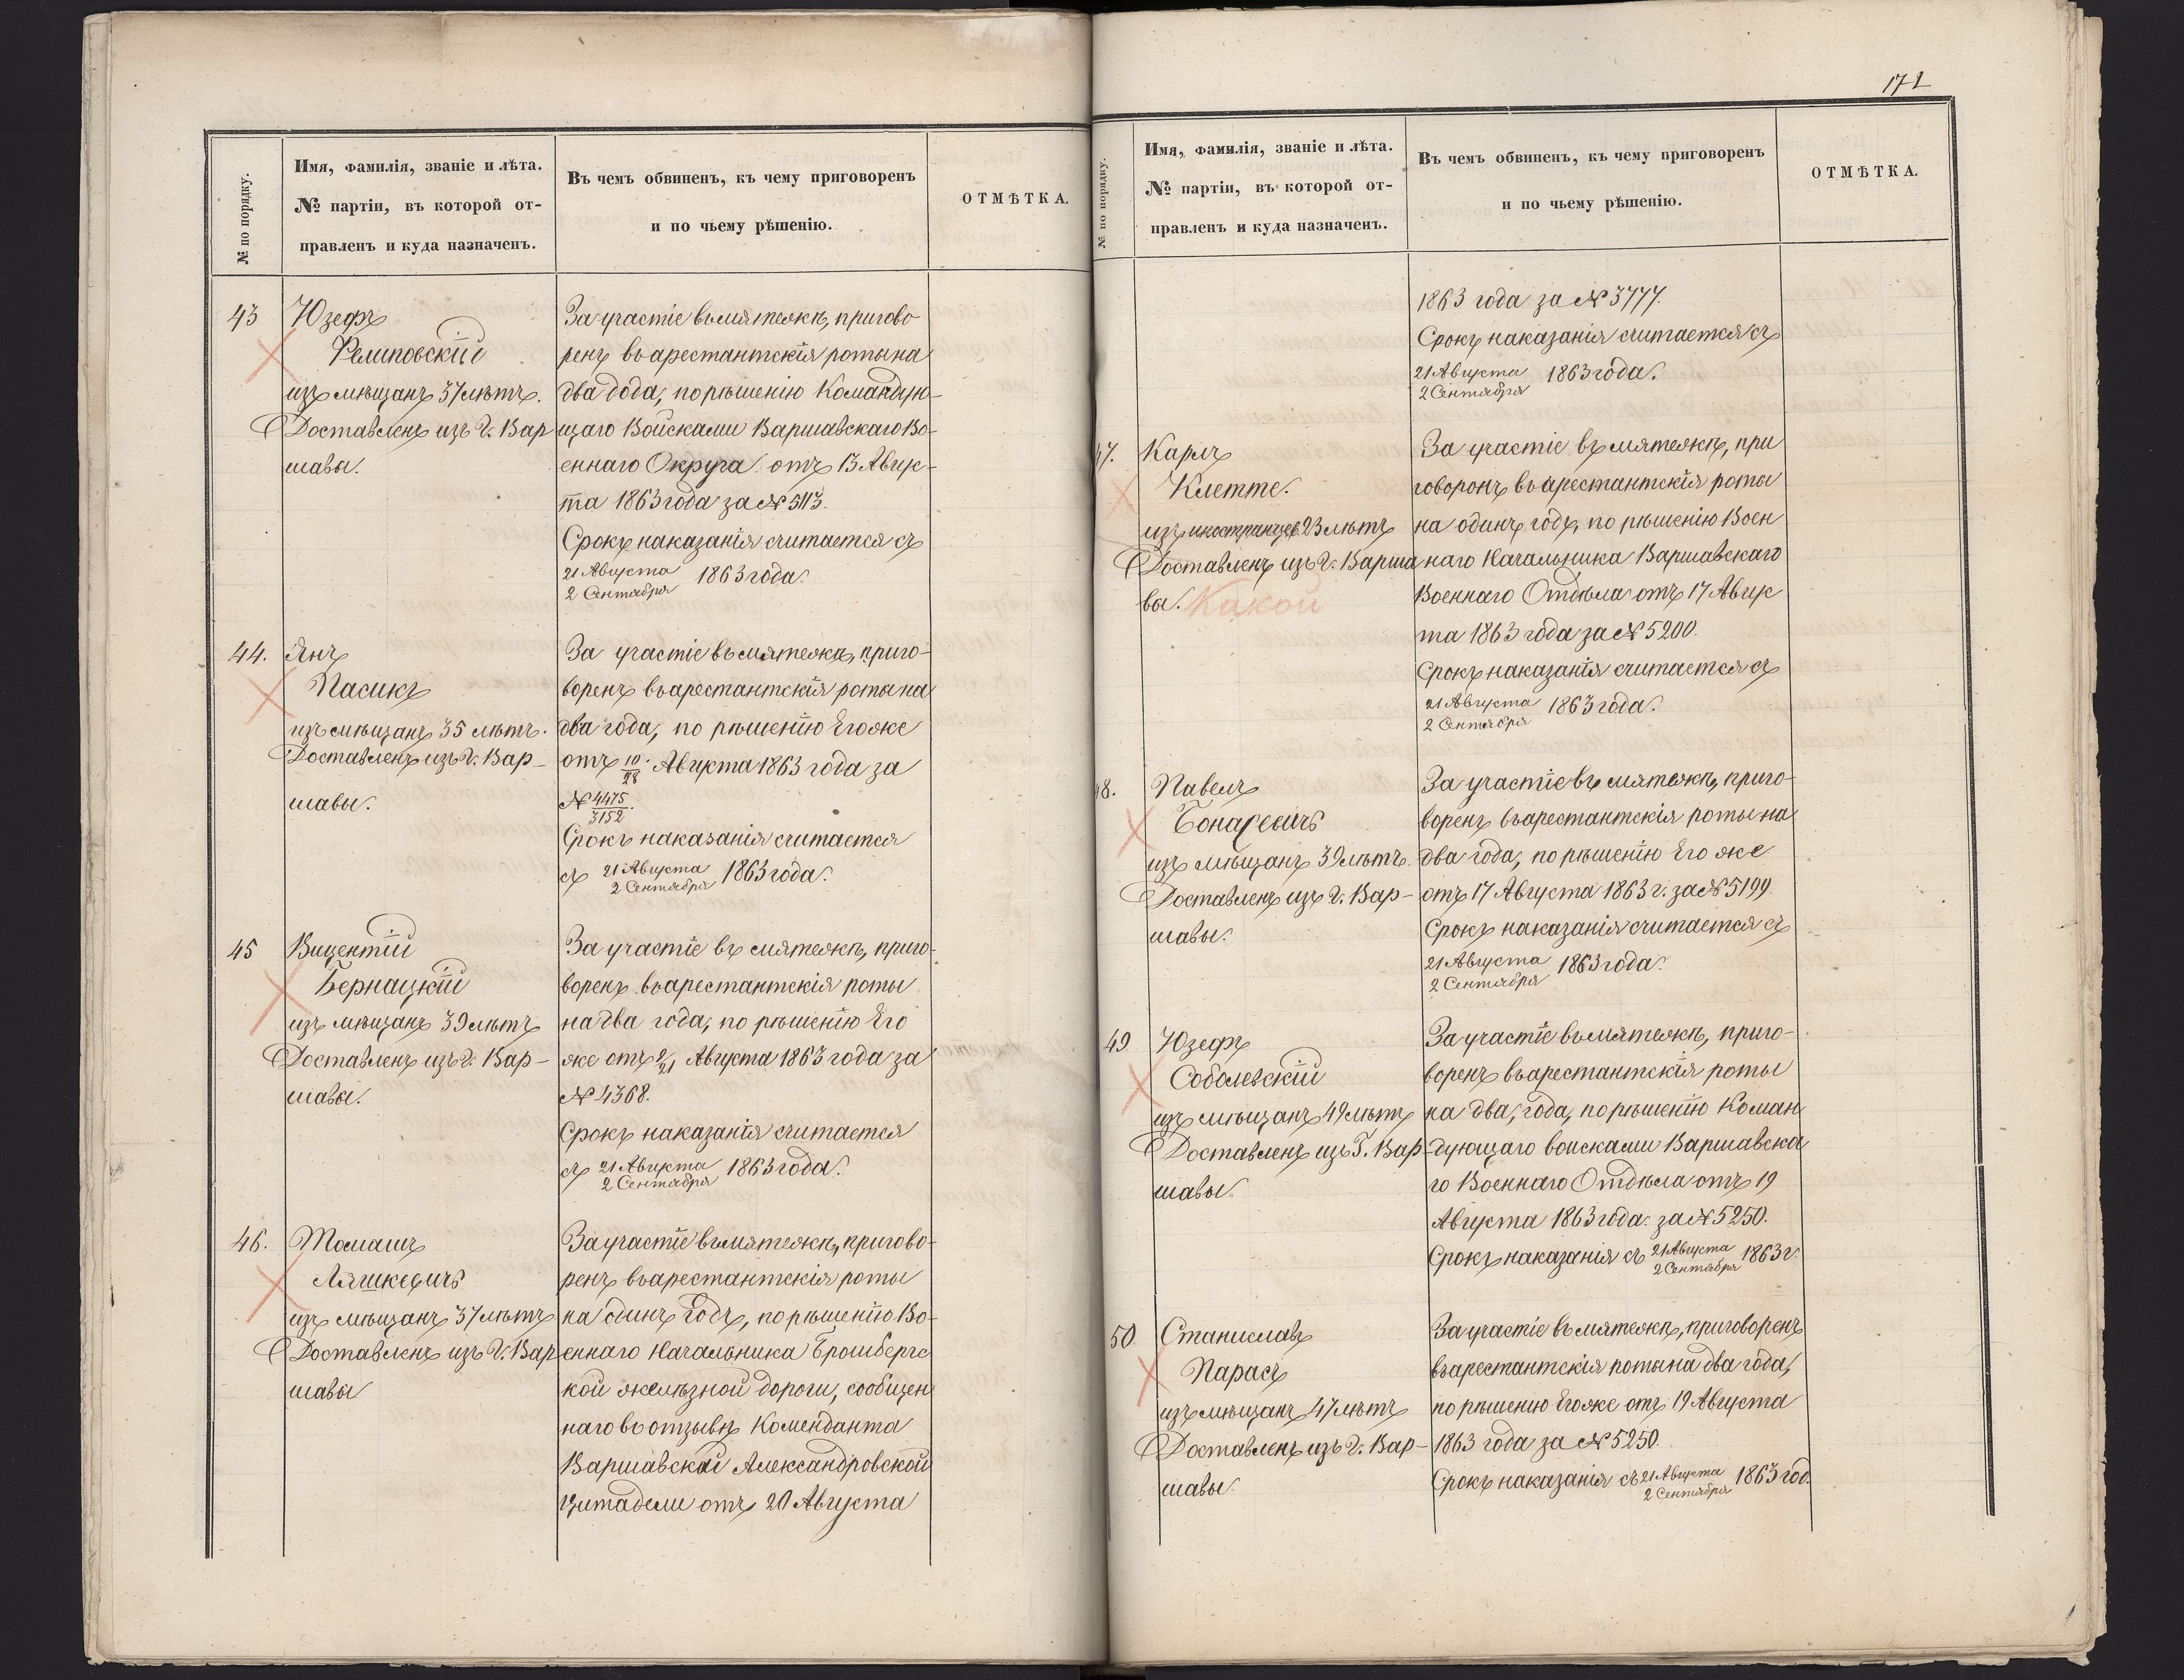 № по порядку.
Имя, фамилія, званіе и лѣта.
№ партіи, въ которой от-
правленъ и куда назначенъ.
Въ чемъ обвиненъ, къ чему приговоренъ
и по чьему рѣшенію.
ОТМѢТКА.
43
Юзефъ
Релиповскій
изъ мѣщанъ 37 лѣтъ.
Доставленъ изъ г. Вар
шавы.
За участіе въ мятежѣ, пригово
ренъ въ арестантскія роты на
два года, по рѣшенію Командую-
щаго Войсками Варшавскаго Во-
еннаго Округа отъ 13 Авгус-
та 1863 года за № 5113.
Срокъ наказанія считается съ
21 Августа
2 Сентября 1863 года.
44.
Янъ
Пасикъ
изъ мѣщанъ 35 лѣтъ.
Доставленъ изъ г. Вар-
шавы.
За участіе въ мятежѣ, приго-
воренъ въ арестантскія роты на
два года, по рѣшенію Его же
отъ 10/28 Августа 1863 года за
№ 4475/3152.
Срокъ наказанія считается
съ 21 Августа
2 Сентября 1863 года.
45
Вицентій
Бернацкій
изъ мѣщанъ 39 лѣтъ
Доставленъ изъ г. Вар-
шавы.
За участіе въ мятежѣ, приго-
воренъ въ арестантскія роты
на два года, по рѣшенію Его
же отъ 2/21 Августа 1863 года за
№ 4368.
Срокъ наказанія считается
съ 21 Августа
2 Сентября 1863 года.
46.
Томашъ
Ляшкевичъ
изъ мѣщанъ 37 лѣтъ
Доставленъ изъ г. Вар
шавы
За участіе въ мятежѣ, пригово-
ренъ въ арестантскія роты
на одинъ годъ, по рѣшенію Во-
еннаго Начальника Бромбергс
кой желѣзной дороги, сообщен
наго въ отзывѣ Коменданта
Варшавской Александровской
Цитадели отъ 20 Августа
172
№ по порядку.
Имя, фамилія, званіе и лѣта.
№ партіи, въ которой от-
правленъ и куда назначенъ.
Въ чемъ обвиненъ, къ чему приговоренъ
и по чьему рѣшенію.
ОТМѢТКА.
1863 года за № 3777.
Срокъ наказанія считается съ
21 Августа
2 Сентября 1863 года.
47.
Карлъ
Клетте.
изъ иностранцев 23 лѣтъ
Доставленъ изъ г. Варша
вы. Какой
За участіе въ мятежѣ, при
говоронъ въ арестантскія роты
на одинъ годъ, по рѣшенію Воен
наго Начальника Варшавскаго
Военнаго Отдѣла отъ 17 Авгус
та 1863 года за № 5200.
Срокъ наказанія считается съ
21 Августа
2 Сентября 1863 года.
48.
Павелъ
Бонасевичъ
изъ мѣщанъ 39 лѣтъ
Доставленъ изъ г. Вар-
шавы.
За участіе въ мятежѣ, приго-
воренъ въ арестантскія роты на
два года, по рѣшенію Его же
отъ 17 Августа 1863 г. за № 5199
Срокъ наказанія считается съ
21 Августа
2 Сентября 1863 года.
49
Юзефъ
Соболевскій
изъ мѣщанъ 49 лѣтъ
Доставленъ изъ Г. Вар-
шавы.
За участіе въ мятежѣ, приго-
воренъ въ арестантскія роты
на два года, по рѣшенію Коман
дующаго воисками Варшавска
го Военнаго Отдѣла отъ 19
Августа 1863 года. за № 5250.
Срокъ наказанія съ 21 Августа
2 Сентября 1863 г.
50
Станиславъ
Парасъ
изъ мѣщанъ 47 лѣтъ
Доставленъ изъ г. Вар-
шавы.
За участіе въ мятежѣ, приговоренъ
въ арестантскія роты на два года,
по рѣшенію Его же отъ 19 Августа
1863 года за № 5250.
Срокъ наказанія съ 21 Августа
2 Сентября 1863 год.